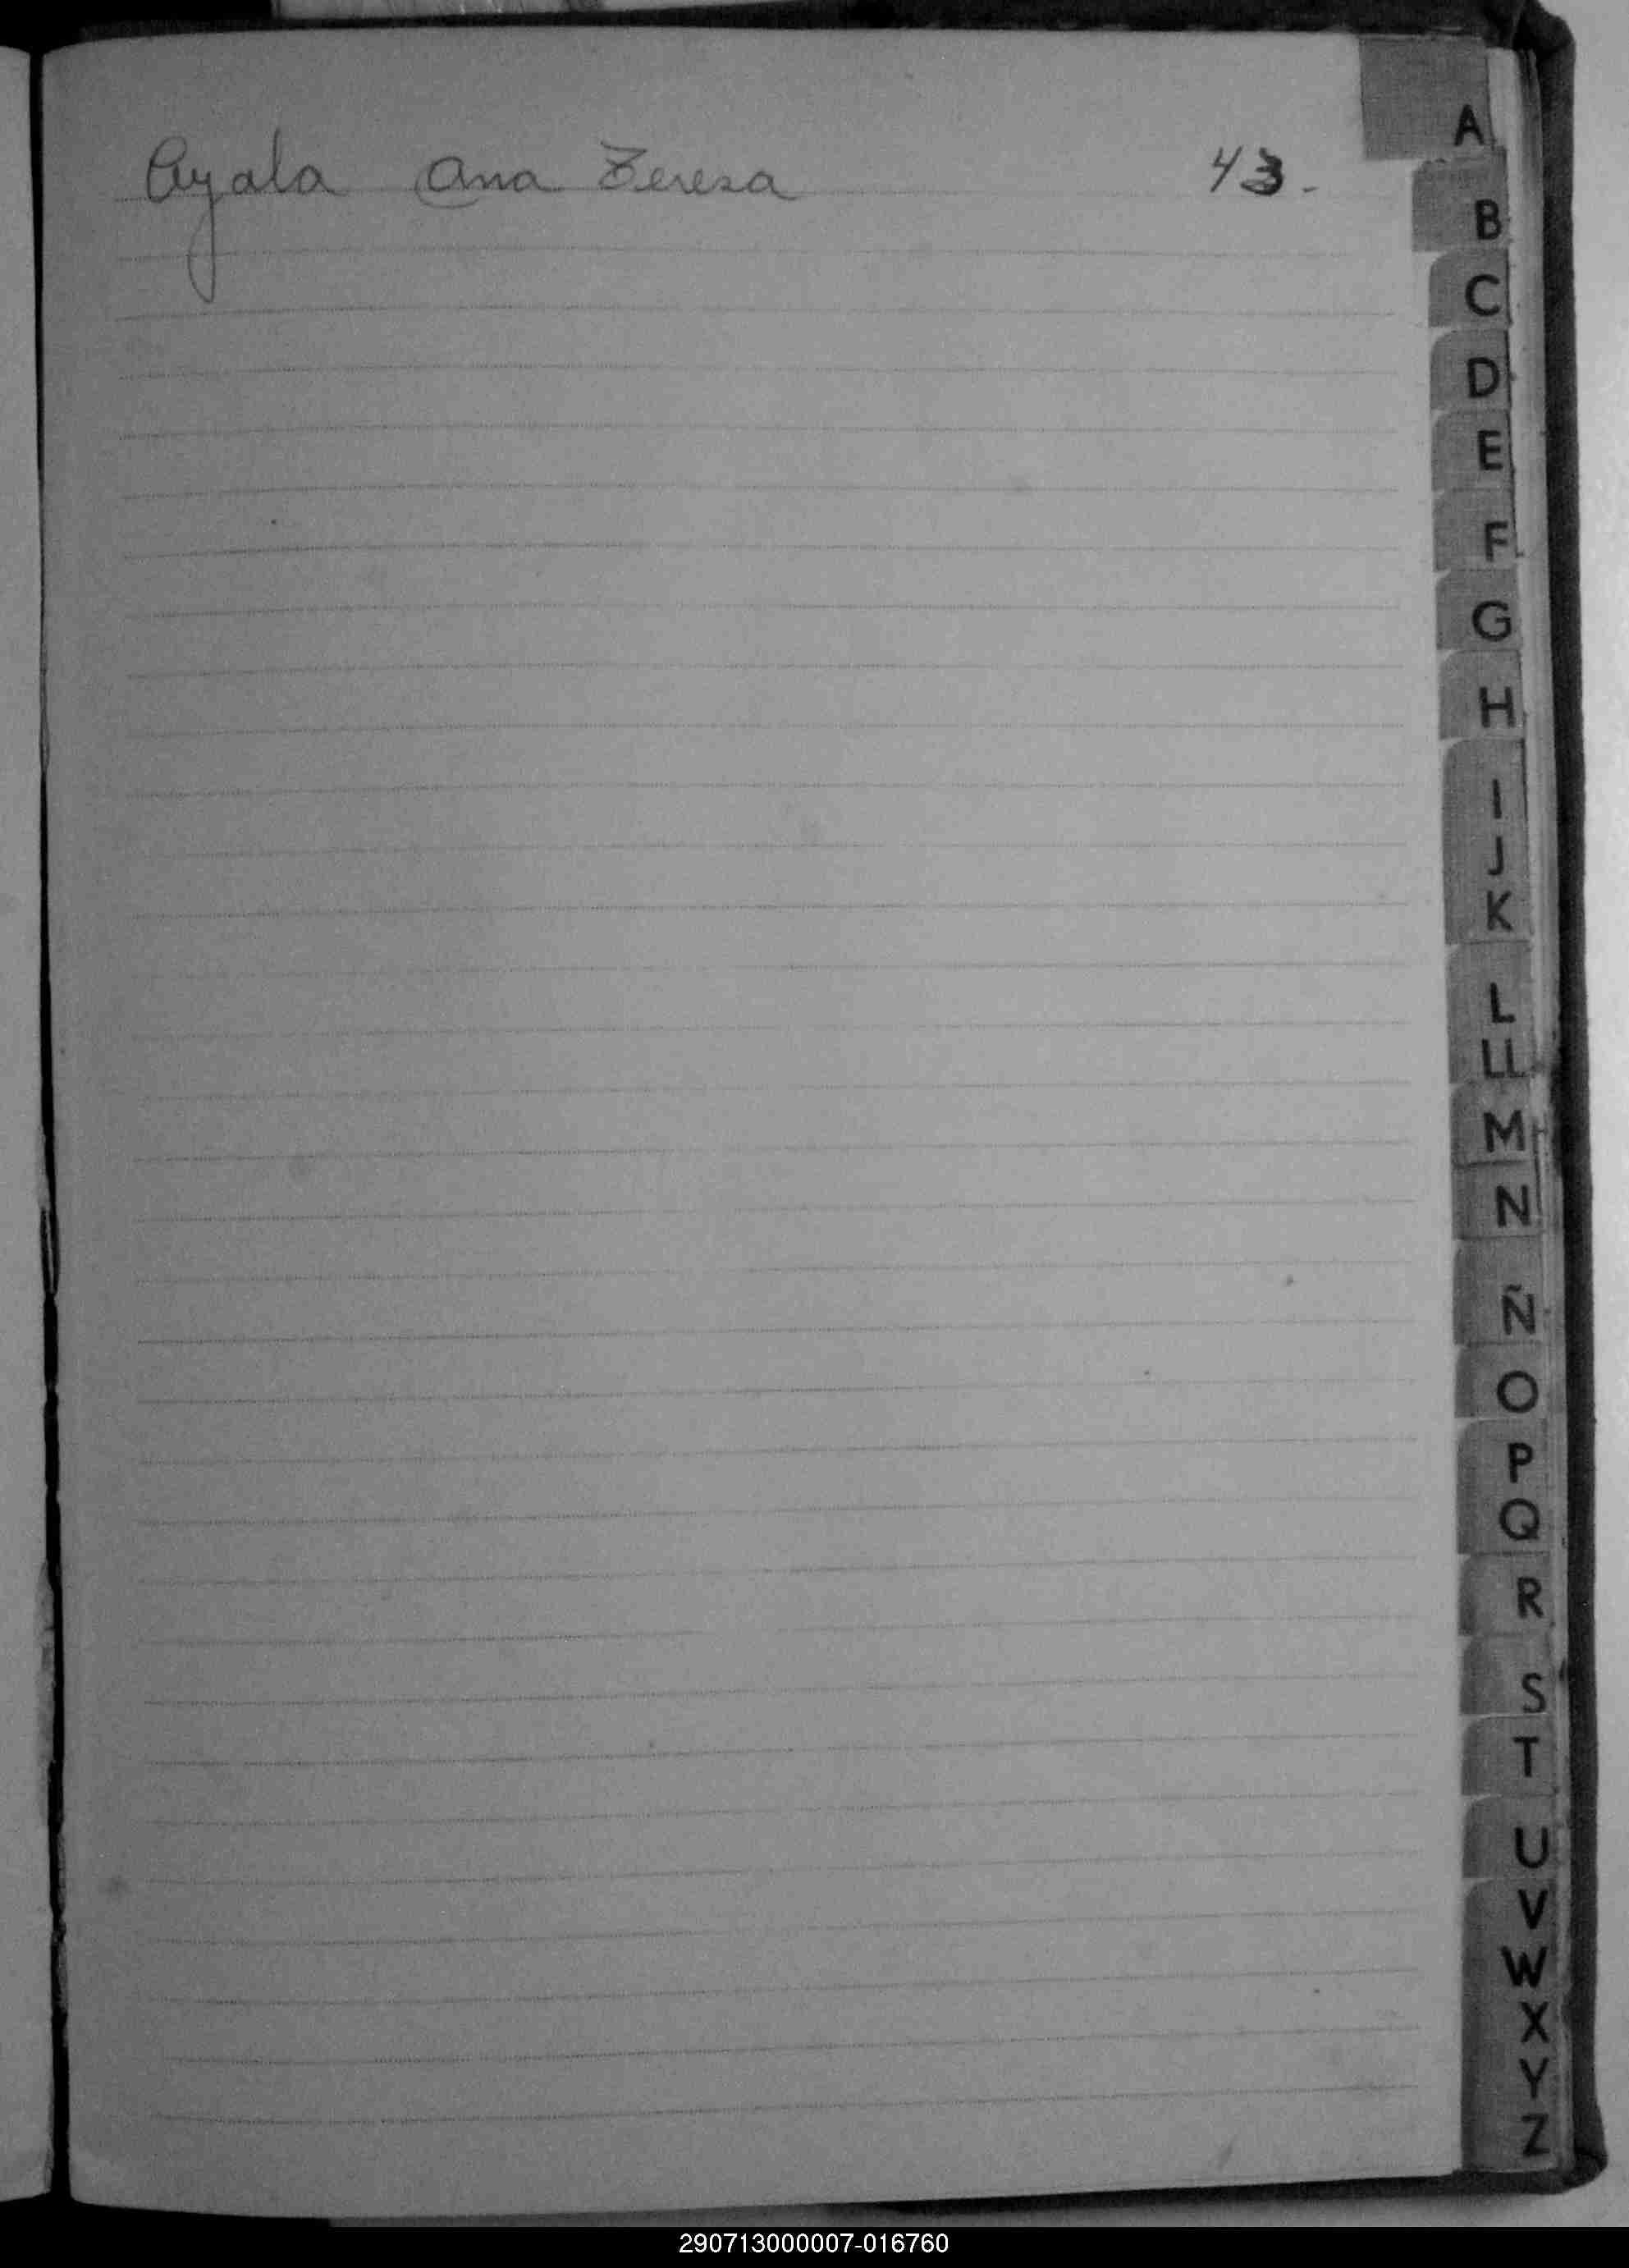 Ayala Ana Teresa 43.-
A
B
C
D
E
F
G
H
I
J
K
L
LL
M
N
Ñ
O
P
Q
R
S
T
U
V
W
X
Y
Z
290713000007-016760